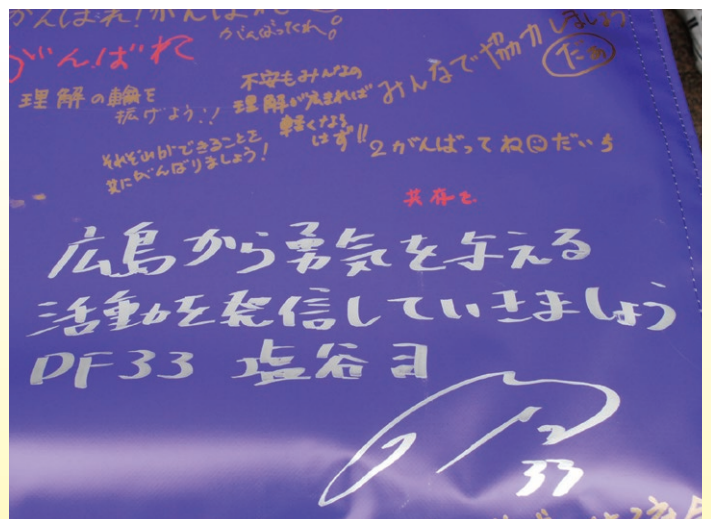 がんばれ!がんばれ
がんばってくれ。
がんばれ
理解の輪を
拡げよう!!
不安もみんなの
理解が広まれば
軽くなる
はず!!
みんなで協力
しましょう
だね
それぞれができることを
共にがんばりましょう!
2がんばってね☺だいち
共存を
広島から勇気を与える
活動を発信していきましょう
DF33 塩谷司
33